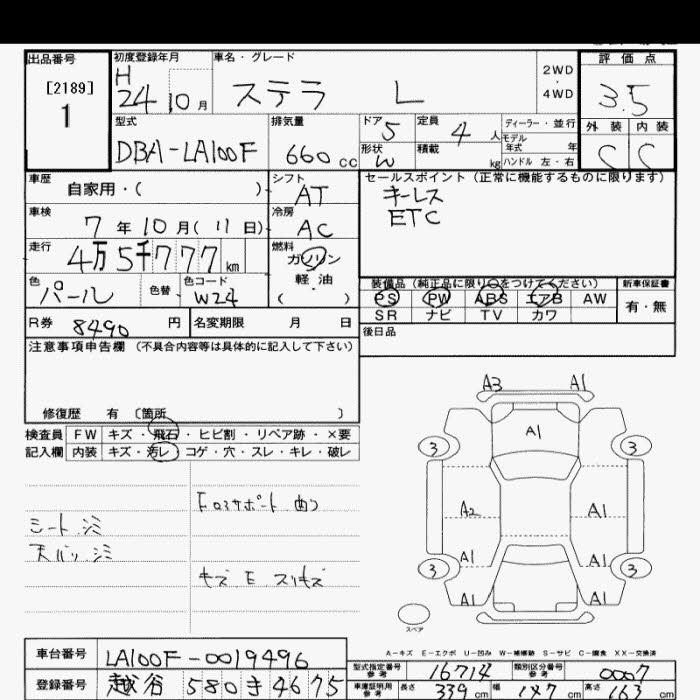 出品番号
[2189]
1
初度登録年月
H
24 10 月
車名・グレード
ステラ L
2WD
・
4WD
評価点
3.5
外装 内装
C C
型式
DBA-LA100F
排気量
660 cc
ドア 5
形状 W
定員 4 人
積載 kg
ディーラー・並行
モデル
年式 年
ハンドル 左・右
車歴
自家用・( )
シフト
AT
セールスポイント (正常に機能するものに限ります)
キーレス
ETC
車検
7 年 10 月 ( 11 日)
冷房
AC
走行
4万5千777 km
燃料
ガソリン
軽・油
( )
色
パール
色替
色コード
W24
装備品 (純正品に限り○をつけてください)
PS PW ABS エアB AW
SR ナビ TV カワ
新車保証書
有・無
R券 8490 円
名変期限 月 日
後日品
注意事項申告欄 (不具合内容等は具体的に記入して下さい)
修復歴 有 〔箇所 〕
検査員 FW キズ・飛石・ヒビ割・リペア跡・×要
記入欄 内装 キズ・汚レ・コゲ・穴・スレ・キレ・破レ
シート シミ
天バリ シミ
Fロアサポート 曲り
キズ E スリキズ
A3 A1
A1
3 3
A2 A1
A1 A1
3 3
A1 A1
スペア
A-キズ E-エクボ U-凹み W-補修跡 S-サビ C-腐食 XX-交換済
車台番号 LA100F-0019496
登録番号 越谷 580 き 4675
型式指定番号
参考
16714
類別区分番号
参考
0007
車庫証明用
参考
長さ 339 cm 幅 147 cm 高さ 163 cm